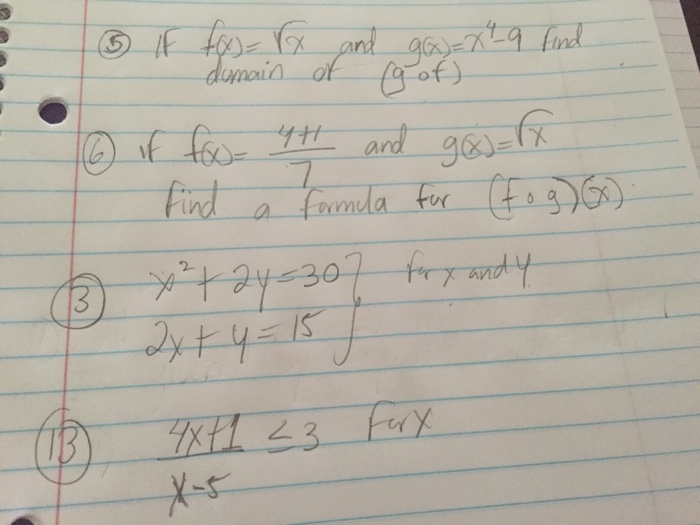 ⑤ If f(x)= √x and g(x)=x⁴-9 find
domain of (g of)
⑥ if f(x)= (4+1)/7 and g(x)=√x
find a formula for (f o g)(x)
③ x²+2y=30 } for x and y
2x+y=15
⑬ (4x+1)/(x-5) ≤ 3 For x